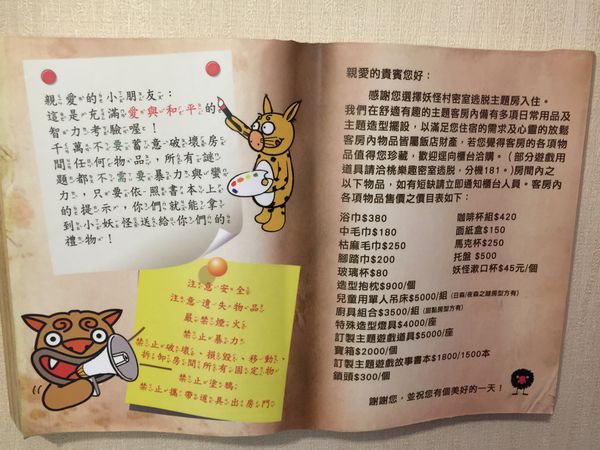 親愛的小朋友：
這是充滿愛與和平的
智力考驗喔！
千萬不要蓄意破壞房
間任何物品，所有謎
題都不需要暴力與蠻
力，只要依照書本上
的提示，你們就能拿
到小妖怪送給你們的
禮物！
注意安全
注意遺失物品
嚴禁煙火
禁止暴力
禁止破壞、損毀、移動、
拆卸房間所有固定物
禁止塗鴉
禁止攜帶道具出房門
親愛的貴賓您好：
感謝您選擇妖怪村密室逃脱主題房入住。
我們在舒適有趣的主題客房內備有多項日常用品及
主題造型擺設，以滿足您住宿的需求及心靈的放鬆
客房內物品皆屬飯店財產，若您覺得客房的各項物
品值得您珍藏，歡迎逕向櫃台洽購。（部分遊戲用
道具請洽桃樂趣密室逃脱，分機181。）房間之內
以下物品，如有短缺請立即通知櫃台人員。客房內
各項物品售價之價目表如下：
浴巾$380 咖啡杯組$420
中毛巾$180 面紙盒$150
枯麻毛巾$250 馬克杯$250
腳踏巾$200 托盤 $500
玻璃杯$80 妖怪漱口杯$45元/個
造型抱枕$900/個
兒童用單人吊床$5000/組 (日森/夜森之謎房型方有)
廚具組合$3500/組 (甜點房型方有)
特殊造型燈具$4000/座
訂製主題遊戲道具$5000/座
寶箱$2000/個
訂製主題遊戲故事書本$1800/1500本
鎖頭$300/個
謝謝您，並祝您有個美好的一天！